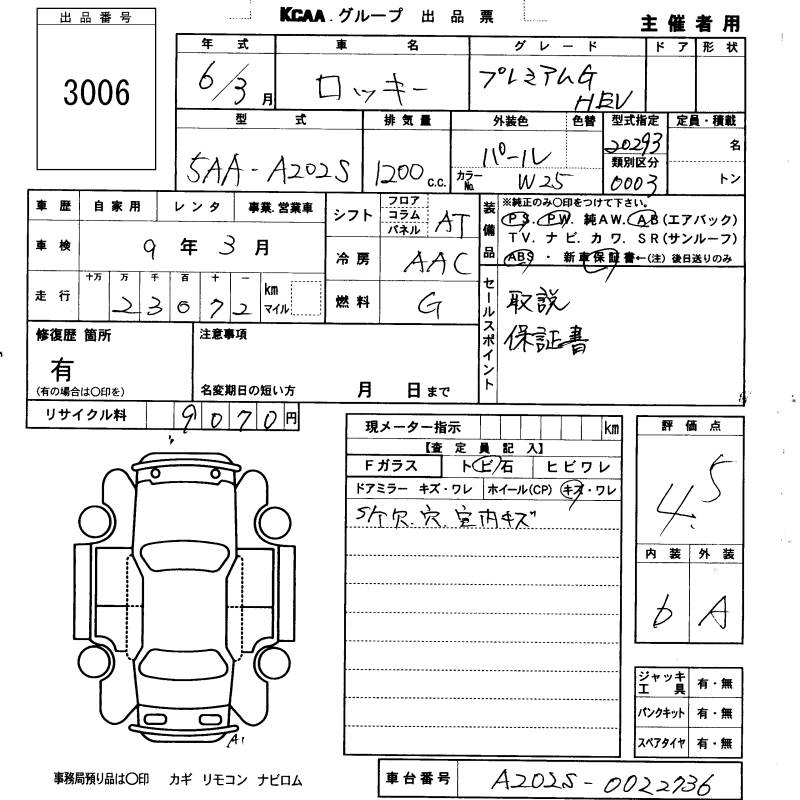 KCAA.グループ 出品票
主催者用
出品番号
3006
年式 車名 グレード ドア 形状
6/3月 ロッキー プレミアムG HEV
型式 排気量 外装色 色替 型式指定 定員・積載
5AA-A202S 1200c.c. パール 20293 名
カラーNo. W25 類別区分 0003 トン
車歴 自家用 レンタ 事業.営業車
車検 9年3月
走行 十万 万 千 百 十 一 km マイル
23072
シフト フロア コラム パネル AT
冷房 AAC
燃料 G
装備品
※純正のみ〇印をつけて下さい。
PS. PW. 純AW. AB(エアバック)
TV. ナビ. カワ. SR(サンルーフ)
ABS ・ 新車保証書←(注)後日送りのみ
セールスポイント
取説
保証書
修復歴 箇所
有
(有の場合は〇印を)
注意事項
名変期日の短い方 月 日まで
リサイクル料 9070円
現メーター指示 km
【査定員記入】
Fガラス トビ石 ヒビワレ
ドアミラー キズ・ワレ ホイール(CP) キズ・ワレ
S欠.穴.室内キズ
評価点
4.5
内装 外装
b A
ジャッキ工具 有・無
パンクキット 有・無
スペアタイヤ 有・無
A1
事務局預り品は〇印 カギ リモコン ナビロム
車台番号 A202S-0022736